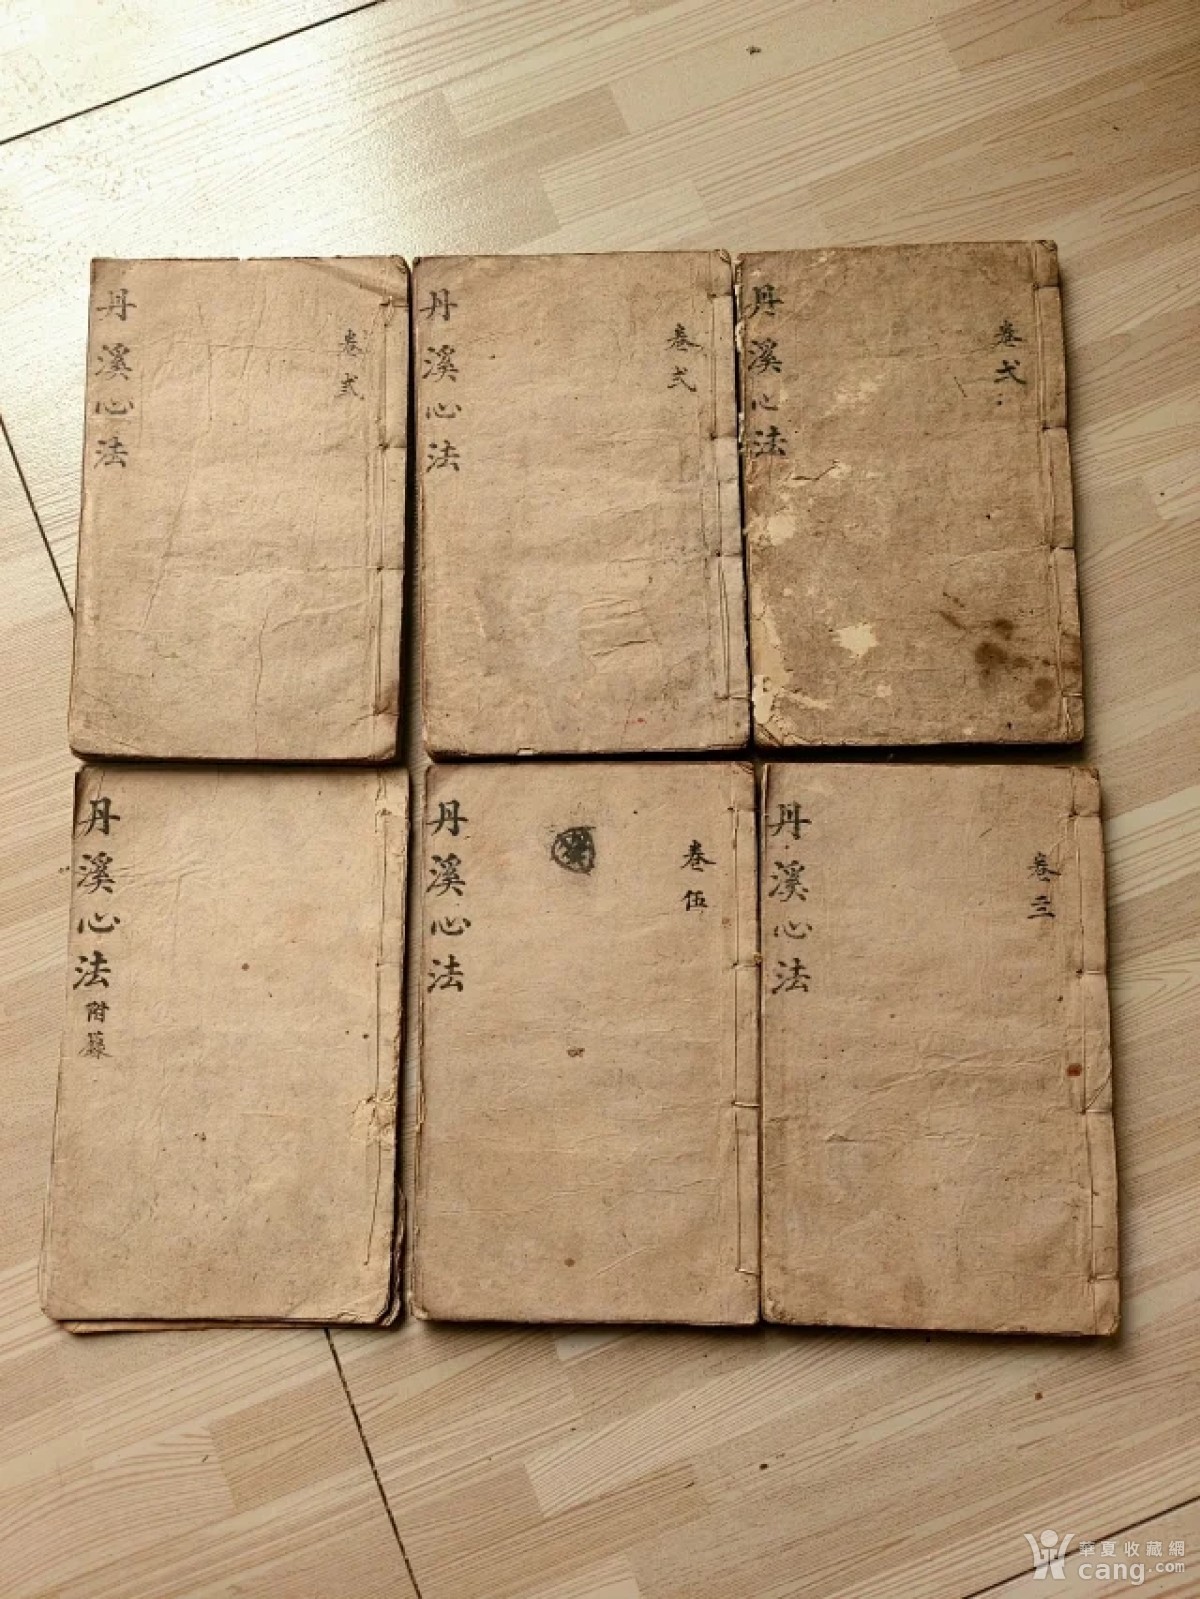 丹溪心法
卷弍
丹溪心法
卷弍
丹溪心法
卷弌
丹溪心法
附錄
丹溪心法
卷伍
丹溪心法
卷三
華夏收藏網
cang.com